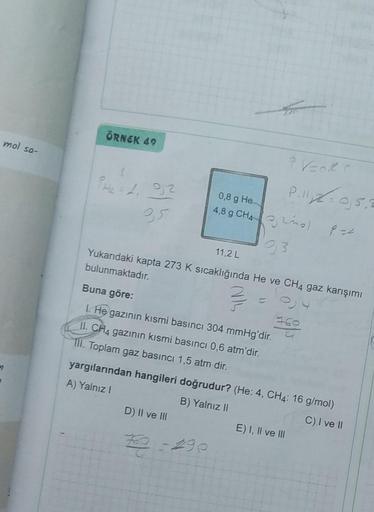 mol sa-
ÖRNEK 49
0,8 g He
4,8 g CH4
11.2 L
0,2 mol
0,3
0,2
0,5
Yukarıdaki kapta 273 K sıcaklığında He ve CH4 gaz karışımı
bulunmaktadır.
Buna göre:
2/5 = 0,4
760
I. He gazının kısmi basıncı 304 mmHg'dir.
II. CH4 gazının kısmi basıncı 0,6 atm'dir.
III. Toplam gaz basıncı 1,5 atm dir.
yargılarından hangileri doğrudur? (He: 4, CH4: 16 g/mol)
A) Yalnız I
B) Yalnız II
C) I ve II
D) II ve III
E) I, II ve III